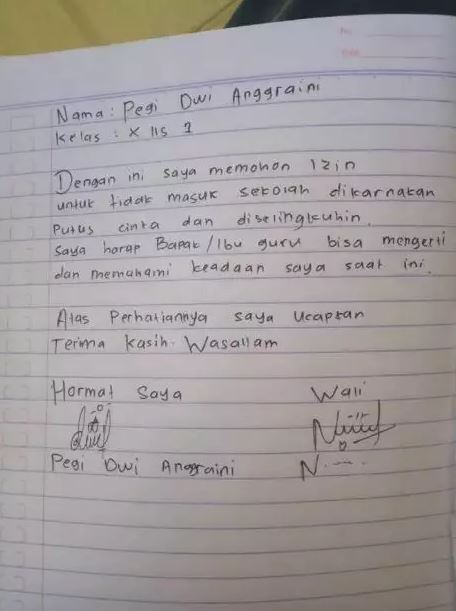 No.
Date
Nama: Pegi Dwi Anggraini
Kelas : X IIS 1
Dengan ini saya memohon Izin
untuk tidak masuk sekolah dikarnakan
Putus cinta dan diselingkuhin.
Saya harap Bapak/Ibu guru bisa mengerti
dan memahami keadaan saya saat ini.
Atas Perhatiannya saya Ucapkan
Terima Kasih. Wasallam
Hormat Saya Wali
Pegi Dwi Anggraini N.----